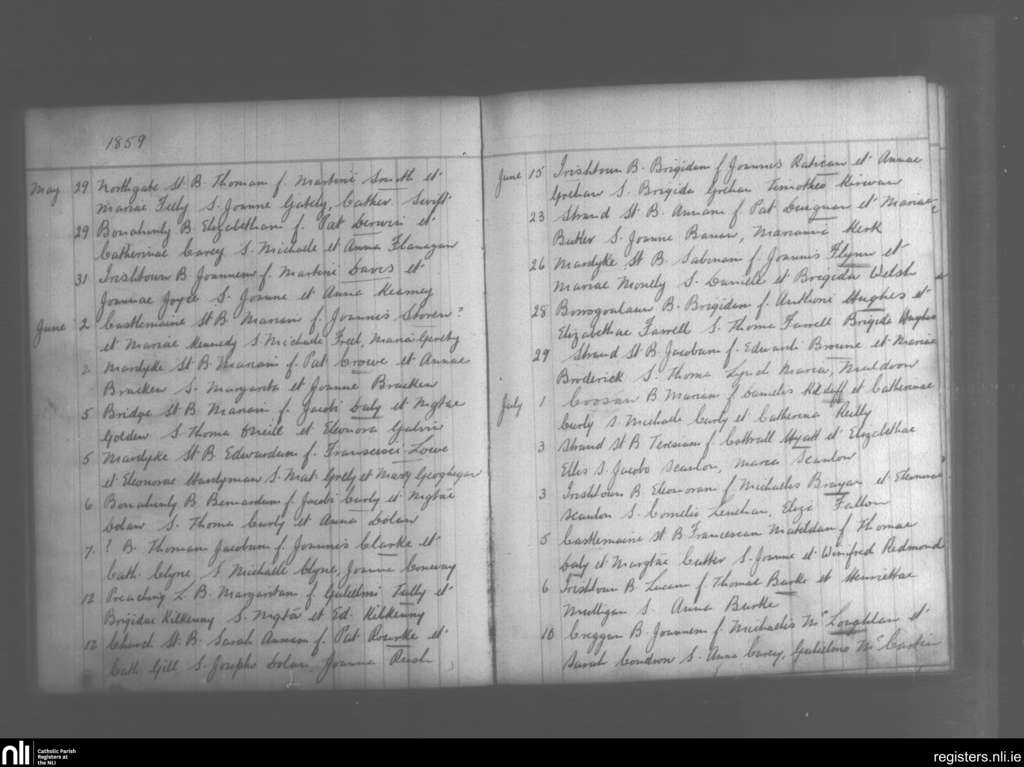 1859
May 29 Northgate St B. Thomam f. Martini Smith et
Mariae Felly S. Joanne Gately, Cather. Swift
29 Bonahinly B. Elizabetham f. Pat Derwin et
Catherinae Carey S. Michaele et Anna Flanagan
31 Irishtown B Joannem f. Martini Davis et
Joannae Joyce S. Joanne et Anna Kearney
June 2 Castlemaine St B. Mariam f. Joannis ?
et Mariae Kennedy S. Michaele Freel, Maria
2 Mardyke St B. Mariam f. Pat Crowe et Annae
Bracken S. Margarita et Joanne Bracken
5 Bridge St B. Mariam f. Jacobi Daly et Mgtae
Golden S. Thoma Oneill et Eleonora Galvin
5 Mardyke St B. Edwardum f. Francisci Lowe
et Eleonorae Handyman S. Mat et Mary Geoghegan
6 Bonahinly B. Bernardum f. Jacobi Curly et Mgtae
Dolan S. Thoma Curly et Anna Dolan
7 ? B. Thomam Jacobum f. Joannis Clarke et
Cath. Clyne S Michaele Clyne, Joanna Conway
12 Preaching L B. Margaritam f. Gulielmi Tully et
Brigidae Kilkenny S. Mgta et Ed. Kilkenny
12 Church St B. Sarah Annam f. Pat Rourke et
Cath Gill S. Josepho Dolan, Joanna Rush
June 15 Irishtown B. Brigidam f Joannis Ratican et Annae
Grehan S. Brigida Grehan Timotheo Kirwan
23 Strand St B. Annam f Pat Duignan et Mariae
Butler S. Joanne Bannon, Marianna Kerk
26 Mardyke St B. Sabinam f. Joannis Flynn et
Mariae S. Daniele et Brigida Welsh
28 B. Brigidam f. Anthoni Hughes et
Elizabethae Farrell S. Thoma Farrell Brigida Hughes
29 Strand St B. Jacobum f. Edwardi Browne et Mariae
Broderick S. Thoma Maria, Muldoon
July 1 Coosan B. Mariam f Danielis et Catherinae
Curly S Michaele Curly et Catherina Reilly
3 Strand St B Teresiam f Hyatt et Elizabethae
Ellis S. Jacobo Scanlon, Maria Scanlon
3 Irishtown B. Eleonoram f Michaelis Brazan et Eleonorae
Scanlon S. Cornelio Lenehan, Eliza Fallon
5 Castlemaine St B Francescam Matildam f Thomae
Daly et Margtae Cutler S. Joanne et Winifred Redmond
6 Irishtown B Lucam f Thomae Burke et Henriettae
Mulligan S. Anna Burke
10 Creggan B. Joannem f Michaelis Mc Loughlan et
Sarah Condron S. Anna Carey, Gulielmo Mc
nli Catholic Parish
Registers at
the NLI
registers.nli.ie